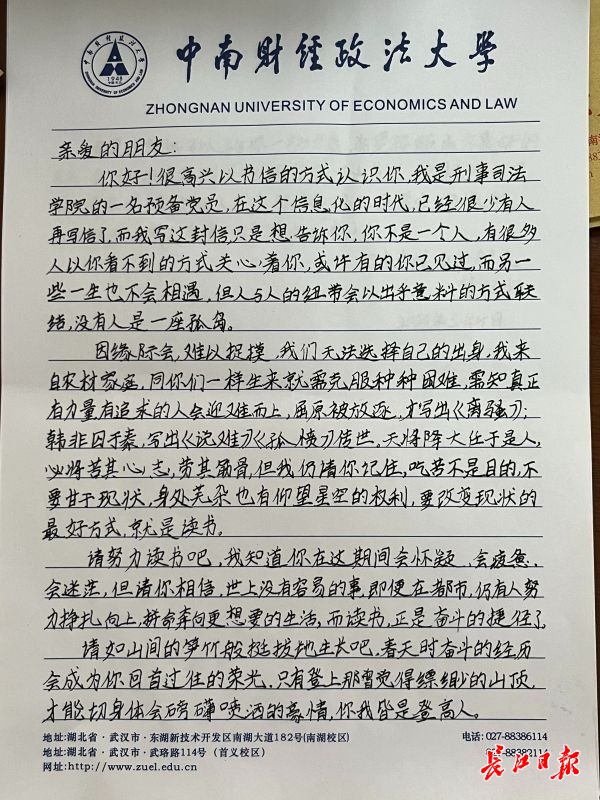 中南财经政法大学
1948
中南财经政法大学
ZHONGNAN UNIVERSITY OF ECONOMICS AND LAW
亲爱的朋友：
你好！很高兴以书信的方式认识你，我是刑事司法
学院的一名预备党员，在这个信息化的时代，已经很少有人
再写信了，而我写这封信只是想告诉你，你不是一个人，有很多
人以你看不到的方式关心着你，或许有的你已见过，而另一
些一生也不会相遇，但人与人的纽带会以出乎意料的方式联
结，没有人是一座孤岛。
因缘际会，难以捉摸，我们无法选择自己的出身，我来
自农村家庭，同你们一样生来就需克服种种困难，需知真正
有力量有追求的人会迎难而上，屈原被放逐，才写出《离骚》；
韩非囚于秦，写出《说难》《孤愤》传世，天将降大任于是人，
必将苦其心志，劳其筋骨，但我仍请你记住，吃苦不是目的，不
要甘于现状，身处芜杂也有仰望星空的权利，要改变现状的
最好方式，就是读书。
请努力读书吧，我知道你在这期间会怀疑、会疲惫、
会迷茫，但请你相信，世上没有容易的事，即便在都市，仍有人努
力挣扎向上，拼命奔向更想要的生活，而读书，正是奋斗的捷径了。
请如山间的笋竹般挺拔地生长吧，春天时奋斗的经历
会成为你回首过往的荣光，只有登上那曾觉得缥缈的山顶，
才能切身体会磅礴喷洒的豪情，你我皆是登高人。
地址:湖北省·武汉市·东湖新技术开发区南湖大道182号(南湖校区)
电话: 027-88386114
地址:湖北省·武汉市·武珞路114号（首义校区）
027-88382114
网址:http://www.zuel.edu.cn
长江日报